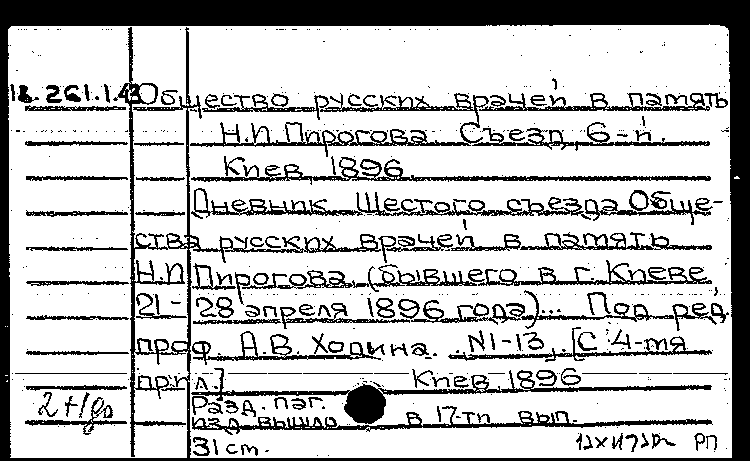 18.261.1.43 Общество русских врачей в память
Н.И.Пирогова. Съезд, 6-й.
Киев, 1896.
Дневник Шестого съезда Обще-
ства русских врачей в память
Н.И Пирогова, (бывшего в г. Киеве
21- 28 апреля 1896 года)... Под ред.
проф. А.В. Ходина. N1-13. [С 4-мя
прил.] Киев, 1896
Разд. паг.
изд. вышло в 17-ти вып.
31 cm. РП